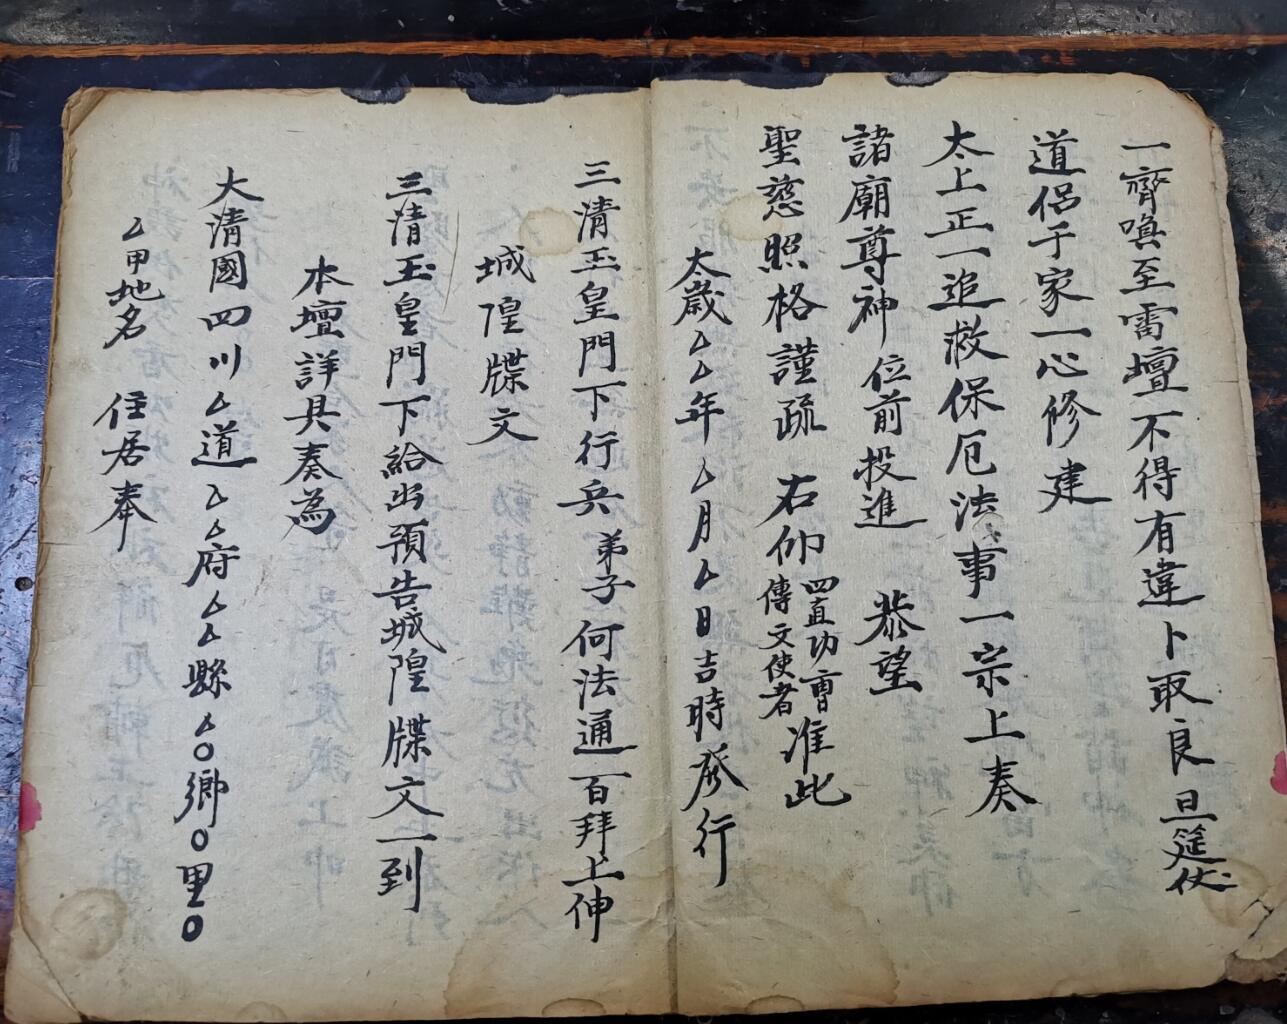 一齊喚至雷壇不得有違卜取良旦筵仗
道侶于家一心修建
太上正一追救保厄法事一宗上奏
諸廟尊神位前投進 恭望
聖慈照格謹疏 右仰四直功曹傳文使者准此
太歲厶厶年厶月厶日吉時發行
三清玉皇門下行兵弟子何法通百拜上伸
城隍牒文
三清玉皇門下給出預告城隍牒文一到
本壇詳具奏為
大清國四川厶道厶厶府厶厶縣厶〇鄉〇里〇
厶甲地名 住居奉